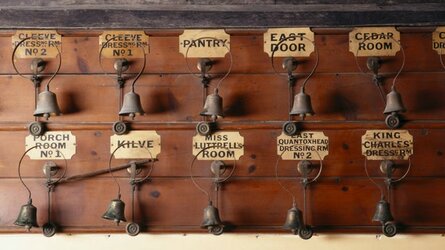 CLEEVE
DRESSG RM
No 2
CLEEVE
DRESSG RM
No 1
PANTRY
EAST
DOOR
CEDAR
ROOM
PORCH
ROOM
No 1
KILVE
MISS
LUTTRELLS
ROOM
EAST
QUANTOXHEAD
DRESSING RM
No 2
KING
CHARLES'
DRESSG RM